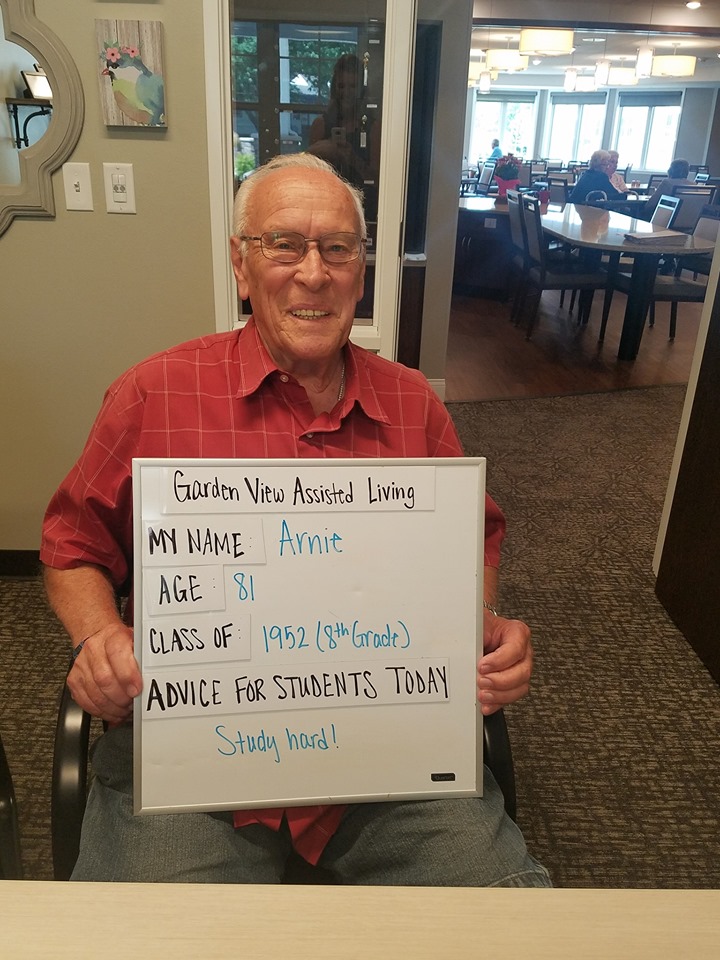 Garden View Assisted Living
MY NAME: Arnie
AGE: 81
CLASS OF: 1952 (8th Grade)
ADVICE FOR STUDENTS TODAY
Study hard!